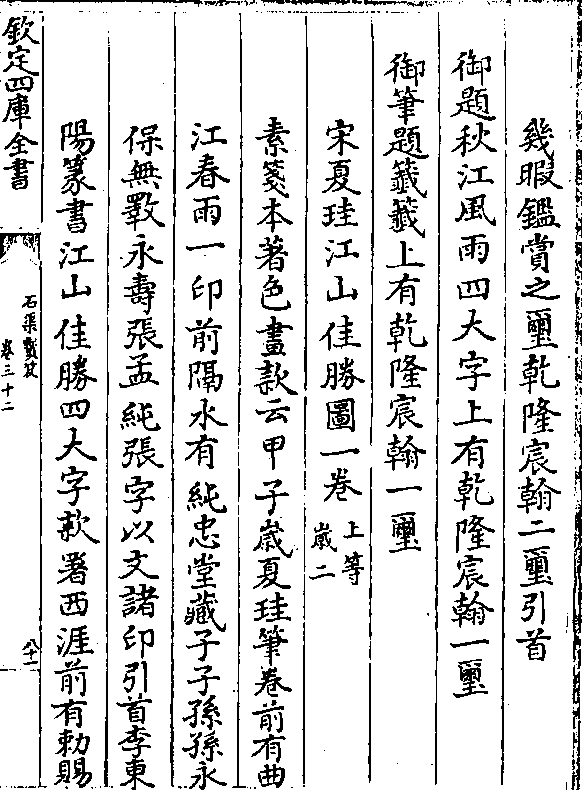 幾暇鑑賞之璽乾隆宸翰二璽引首
御題秋江風雨四大字上有乾隆宸翰一璽
御筆題籖籖上有乾隆宸翰一璽
宋夏珪江山佳勝圖一卷上等
歲二
素箋本著色畫款云甲子歲夏珪筆卷前有曲
江春雨一印前隔水有純忠堂藏子子孫孫永
保無斁永壽張孟純張字以文諸印引首李東
陽篆書江山佳勝四大字款署西涯前有勅賜
欽定四庫全書
石渠寶笈
卷三十二
八十一